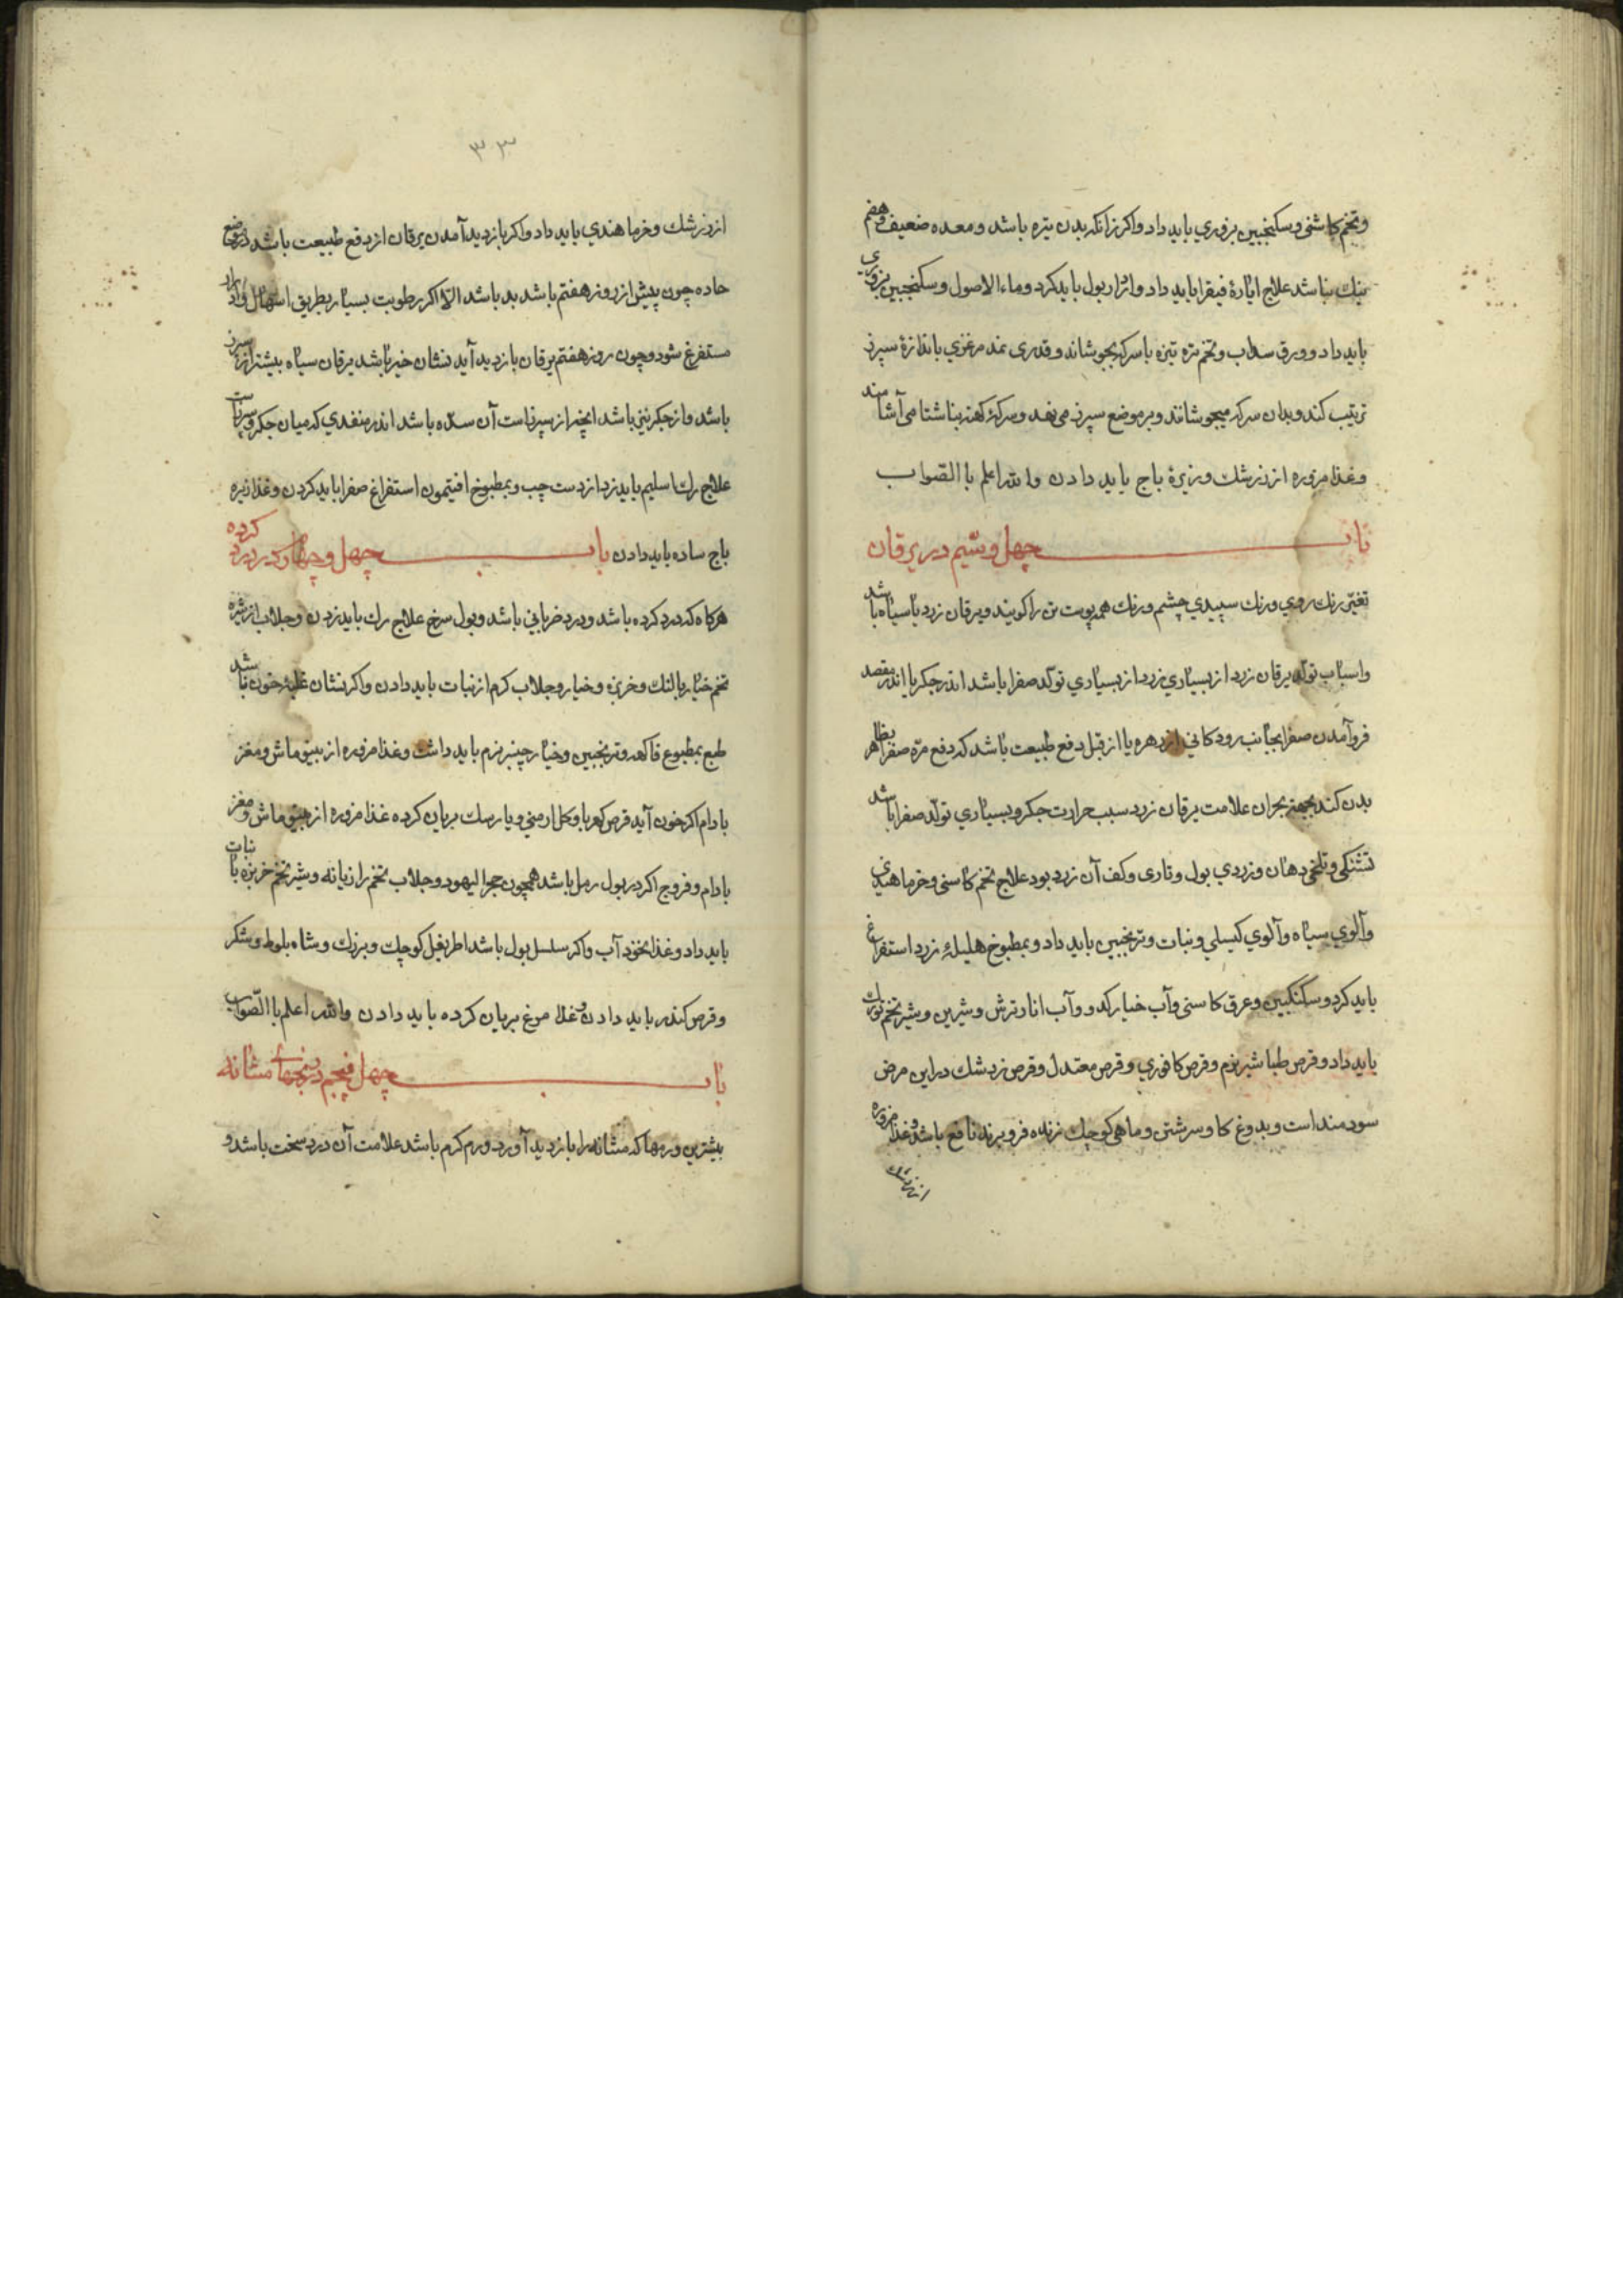 وتخم کاشنی وسکنجبین بزوری باید داد واکر زانکه بدن تیره باشد ومعده ضعیف وهضم
نیك نباشد علاج ایارۀ فیقرا باید داد وادرار بول باید کرد وماء الاصول وسکنجبین بزوری
باید داد وورق سداب وتخم تره تیزه با سرکه بجوشاند وقدری نمد مرغزی باندازۀ سپرز
ترتیب کند وبدان سرکه میجوشانند وبر موضع سپرز می نهد وسرکۀ کهنه بناشتا می آشامند
وغذا مزوره از زرشك وزیرۀ باج باید دادن والله اعلم باالصواب
باب چهل وسیم در یرقان
تغیّر رنك روي ورنك سپیدي چشم ورنك همه پوست تن را کویند ویرقان زرد یا سیاه باشد
واسباب تولّد یرقان زرد از بسیاري زرد از بسیاري تولّد صفرا باشد اندر جکر یا اندر مقصد
فروآمدن صفرا بجانب رودکانی از زهره یا از قبل دفع طبیعت باشد که دفع مرّه صفرا بظاهر
بدن کند بجهة بحران علامت یرقان زرد سبب حرارت جکر وبسیاري تولّد صفرا باشد
تشنکی وتلخی دهان وزردي بول وقاری وکف آن زرد بود علاج تخم کاسنی وخرما هندی
وآلوي سیاه وآلوي کیسلی ونبات وترنجبین باید داد وبمطبوخ هلیلۀ زرد استفراغ
باید کرد وسکنکبین وعرق کاسنی وآب خیار کدو وآب انار ترش وشیرین وشیر تخم تورك
باید داد وقرص طباشیر نرم وقرص کافوري وقرص معتدل وقرص زرشك در این مرض
سودمند است وبدوغ کاو سرشتن وماهی کوچك زنده فرو برند نافع باشد وغذا مزوره
از زرشك
۳۳
از زرشك وخرما هندي باید داد واکر بازدید آمدن یرقان از دفع طبیعت باشد در
حاده چون پیش از روز هفتم باشد بد باشد الّا اکر رطوبت بسیار بطریق اسهال
مستفرغ شود وچون روز هفتم یرقان بازدید آید نشان خیر باشد یرقان سیاه بیشتر از سپرز
باشد واز جکر نیز باشد انچه از سپرزاست آن سدّه باشد اندر منفدي که میان جکر وسپرزاست
علاج رك اسلیم باید زد از دست چپ وبمطبوخ افتیمون استفراغ صفرا باید کردن وغذا زیره
باج ساده باید دادن باب چهل وچهارم در درد کرده
هرکاه که درد کرده باشد ودرد ضربانی باشد وبول سرخ علاج رك باید زدن وجلاب از شیره
تخم خیار بالنك وخربزه وخیار وجلاب کرم از نبات باید دادن واکر نشان غلبۀ خون باشد
طبع بمطبوع فاکهه وترنجبین وخیار چنبر نرم باید داشت وغذا مزوره از بینو ماش ومغز
بادام اکر خون آید قرص کهربا وکل ارمنی ویا رسك بریان کرده غذا مزوره از بینو ماش ومغز
بادام وفروج اکر در بول رمل باشد همچون حجرا لیهود وجلاب تخم رازیانه وشیر تخم خربزه با نبات
باید داد وغذا نخود آب واکر سلسل بول باشد اطریفل کوچك وبزرك وشاه بلوط وشکر
وقرص کندر باید دادن وغذا مرغ بریان کرده باید دادن والله اعلم باالصّواب
باب چهل پنجم در رنجهاي مثانه
بیشترین ورمها که مثانه را بازدید آورد ورم کرم باشد علامت آن درد سخت باشد و